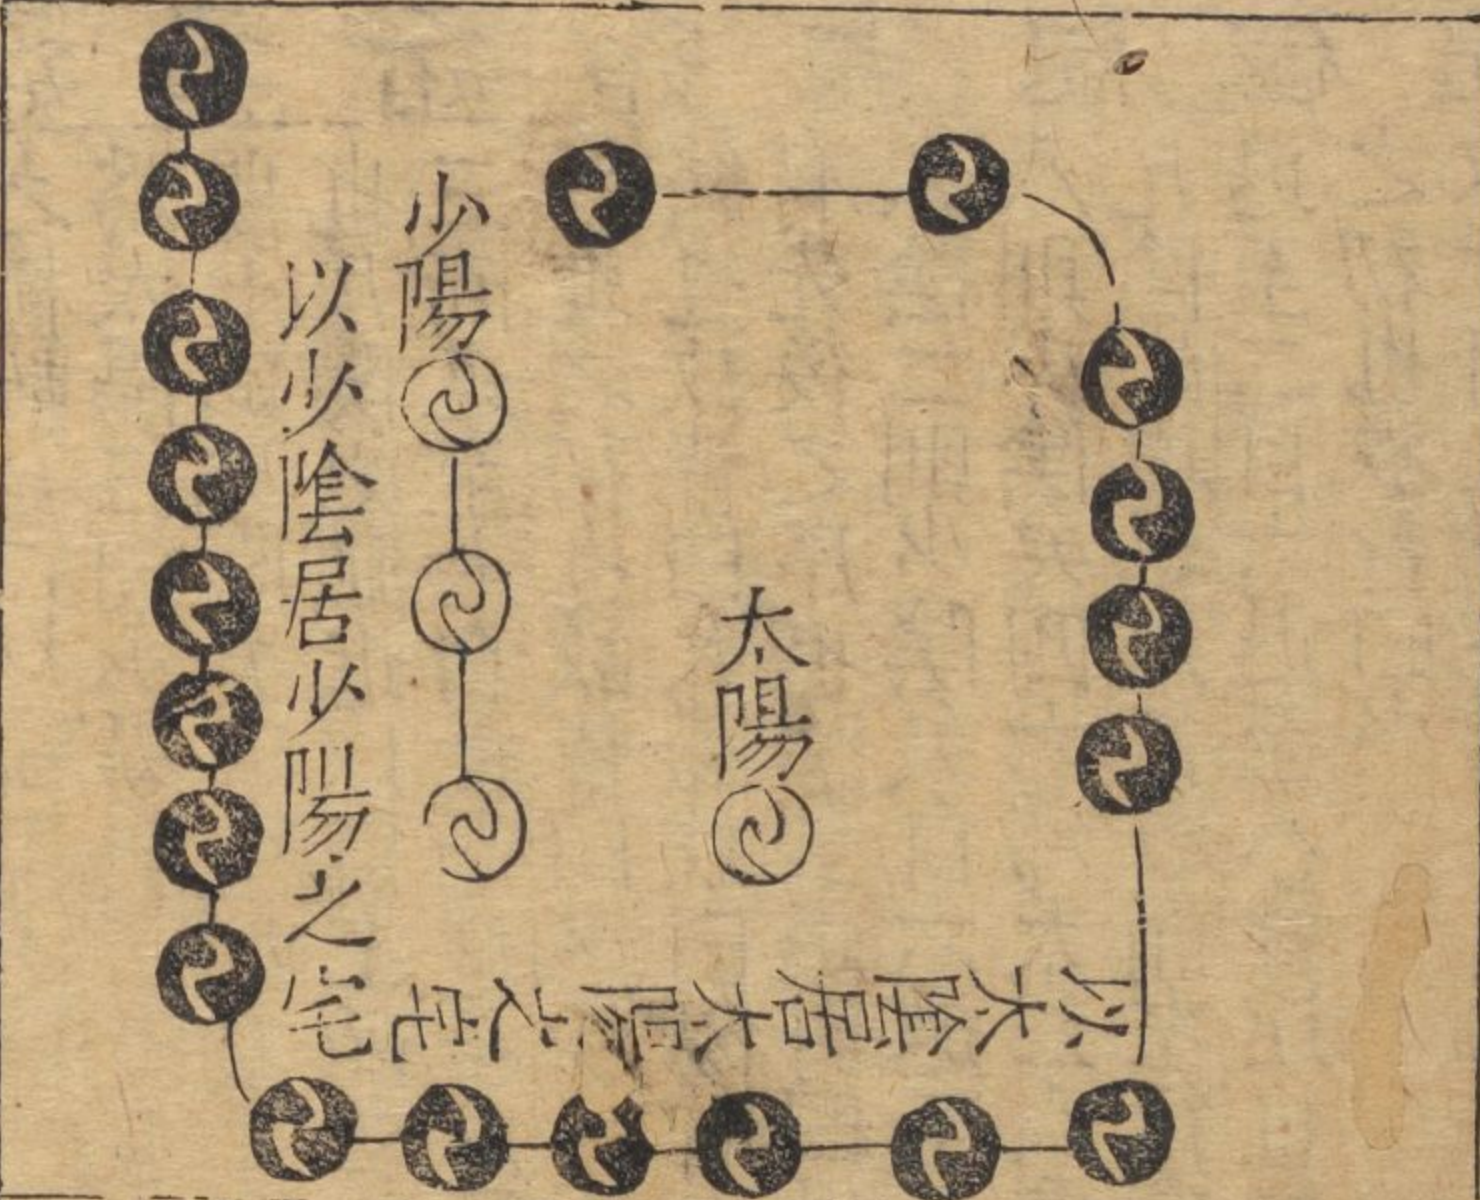 太陽
少陽
以太陰居太陽之宅
以少陰居少陽之宅